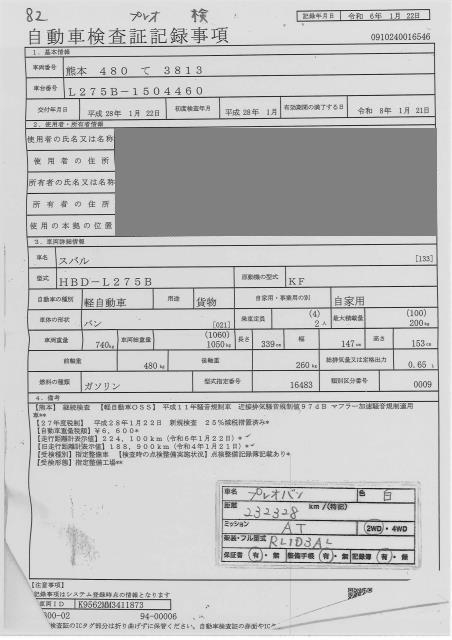 82 プレオ 検
記録年月日 令和 6年 1月 22日
自動車検査証記録事項 0910240016546
1．基本情報
車両番号 熊本 480 て 3813
車台番号 L275B-1504460
交付年月日 平成 28年 1月 22日 初度検査年月 平成 28年 1月 有効期間の満了する日 令和 8年 1月 21日
2．使用者・所有者情報
使用者の氏名又は名称
使用者の住所
所有者の氏名又は名称
所有者の住所
使用の本拠の位置
3．車両詳細情報
車名 スバル [133]
型式 HBD-L275B 原動機の型式 KF
自動車の種別 軽自動車 用途 貨物 自家用・事業用の別 自家用
車体の形状 バン [021] 乗車定員 (4) 2人 最大積載量 (100) 200kg
車両重量 740kg 車両総重量 (1060) 1050kg 長さ 339cm 幅 147cm 高さ 153cm
前軸重 480kg 後軸重 260kg 総排気量又は定格出力 0.65L
燃料の種類 ガソリン 型式指定番号 16483 類別区分番号 0009
4．備考
【熊本】 継続検査 【軽自動車OSS】 平成11年騒音規制車 近接排気騒音規制値97dB マフラー加速騒音規制適用
車**
【27年度税制】 平成28年1月22日 新規検査 25%減税措置済み*
【自動車重量税額】 ¥6,600*
【走行距離計表示値】 224,100km (令和6年1月22日)*
【旧走行距離計表示値】 188,900km (令和4年1月21日)*
【受検種別】 指定整備車 【検査時の点検整備実施状況】 点検整備記録簿記載あり*
【受検形態】 指定整備工場**
車名 プレオバン 色 白
距離 232328 km/(特記)
ミッション AT 2WD・4WD
架装・フル型式 RL1D3AL
保証書 有・無 整備手帳 有・無 記録簿 有・無
【注意事項】
記録事項はシステム登録時点の情報となります
車両ID K9562MM3411873
600-02 94-00006
検査証のICタグ部分は折り曲げずに保管ください。